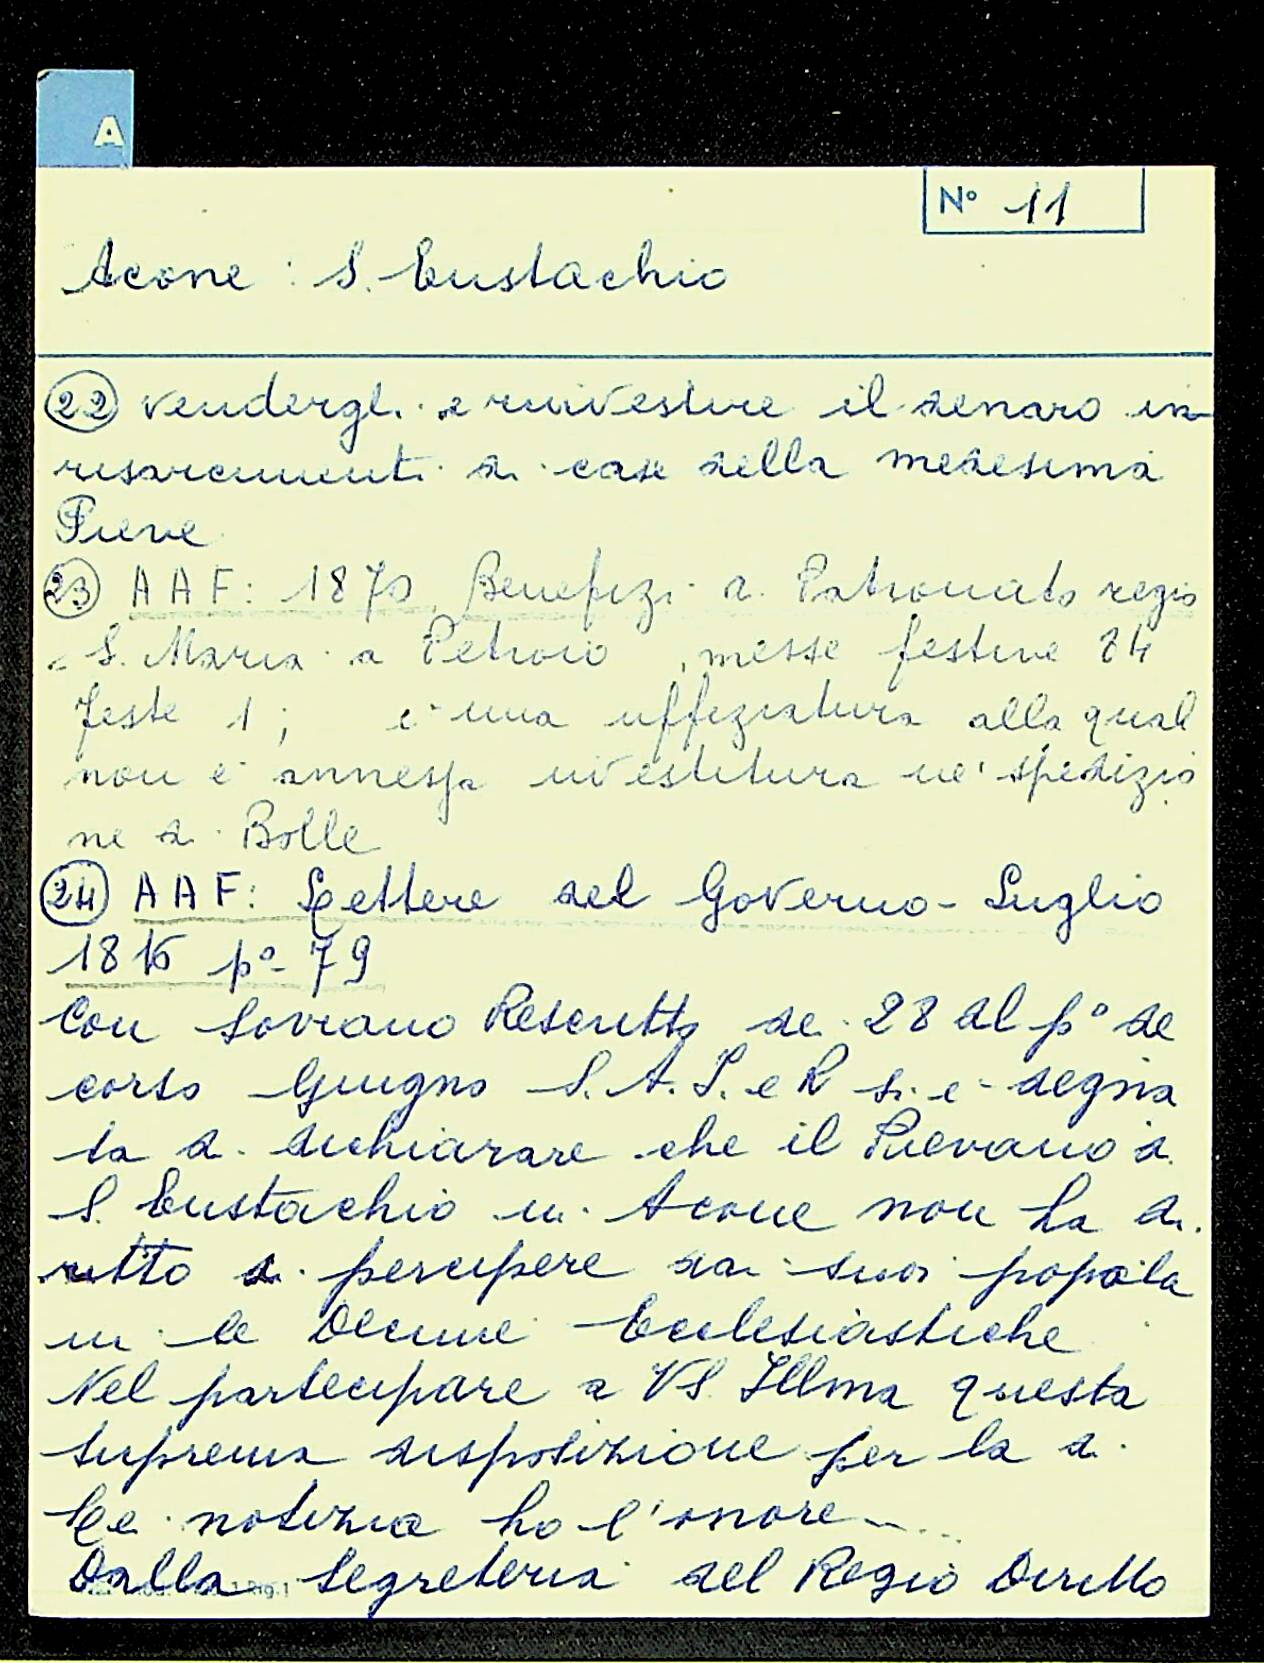 A
N° 11
Acone : S. Eustachio
22 vendergli e rinvestire il denaro in
risarcimenti di case della medesima
Pieve
23 A A F: 1870 Benefizi di Patronato regio
S. Maria a Petroio, messe festive 24
feste 1; è una uffiziatura alla qual
non è annessa investitura ne' spedizio
ne di Bolle
24 A A F: Lettere del Governo - Luglio
1816 p° 79
Con Sovrano Rescritto de 28 del p° de
corso Giugno S. A. I. e R si è degna
ta di dichiarare che il Pievano di
S. Eustachio in Acone non ha di
ritto di percipere dai suoi popola
ni le Decime Ecclesiastiche
Nel partecipare a VS. Illma questa
suprema disposizione per la di
Lei notizia ho l'onore ....
Dalla Segreteria del Regio Diritto